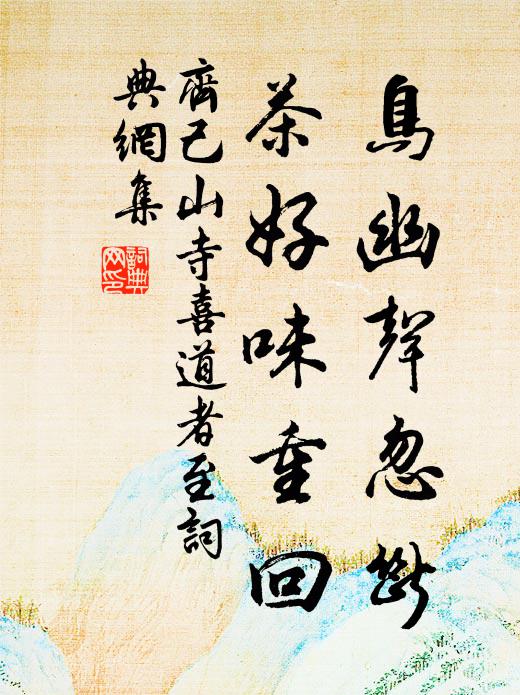 鳥幽聲忽斷
茶好味重回
齊己山寺喜道者至詞
典網集
詞典網印